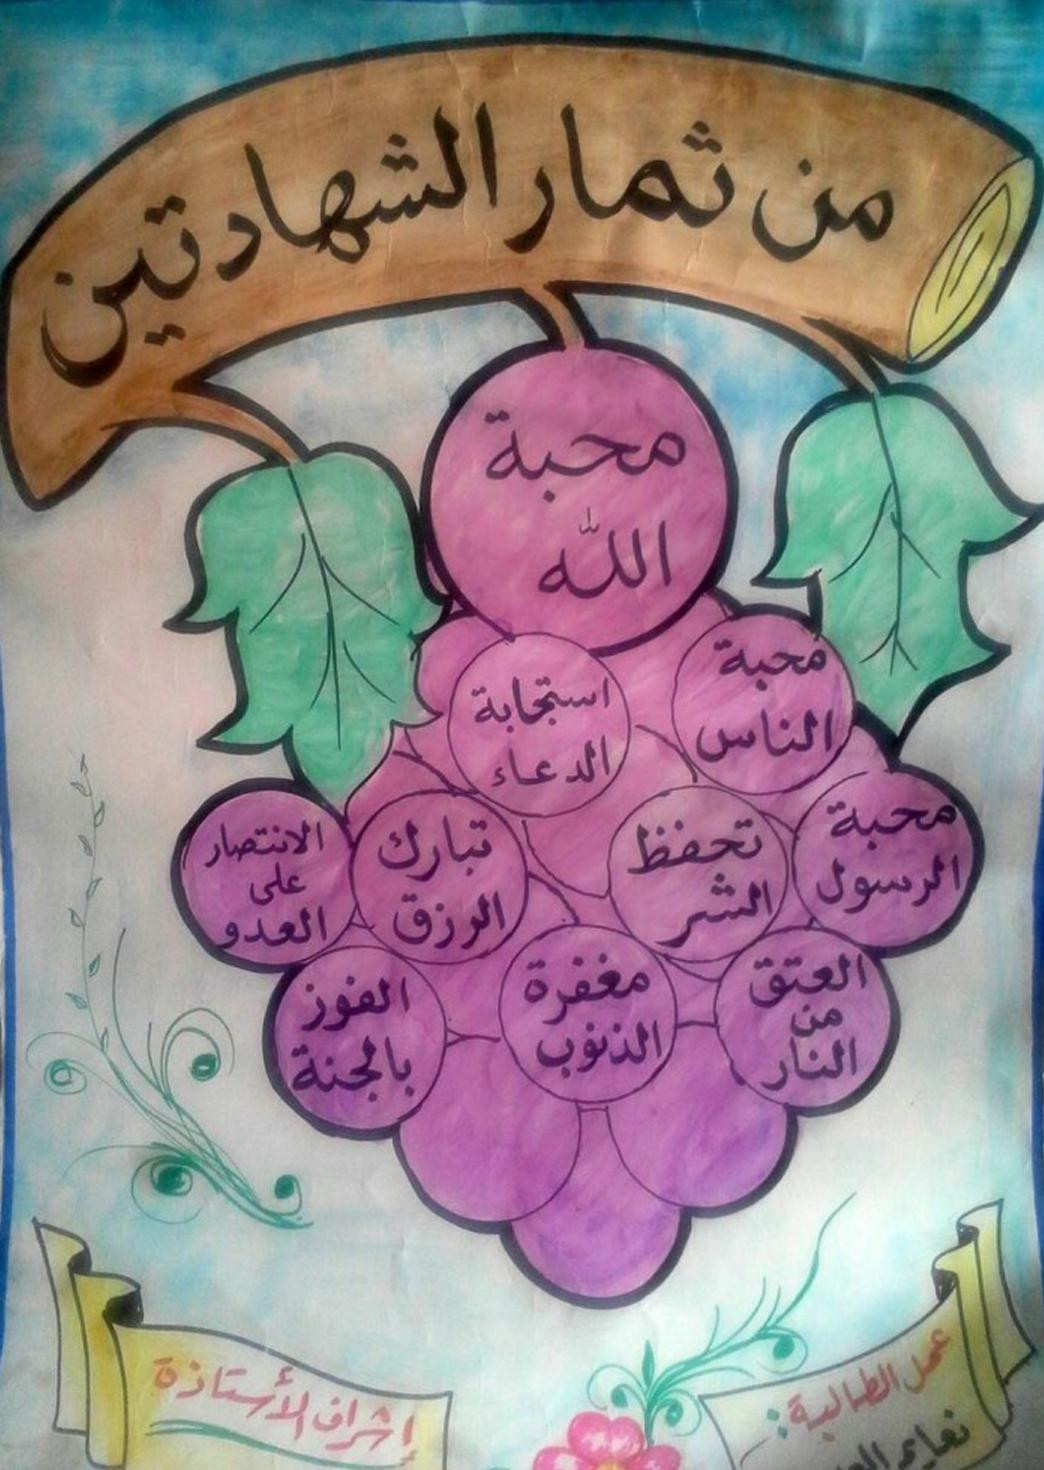 من ثمار الشهادتين
محبة
الله
محبة
الناس
استجابة
الدعاء
محبة
الرسول
تحفظ
الشر
تبارك
الرزق
الانتصار
على
العدو
العتق
من
النار
مغفرة
الذنوب
الفوز
بالجنة
عمل الطالبة:
إشراف الأستاذة